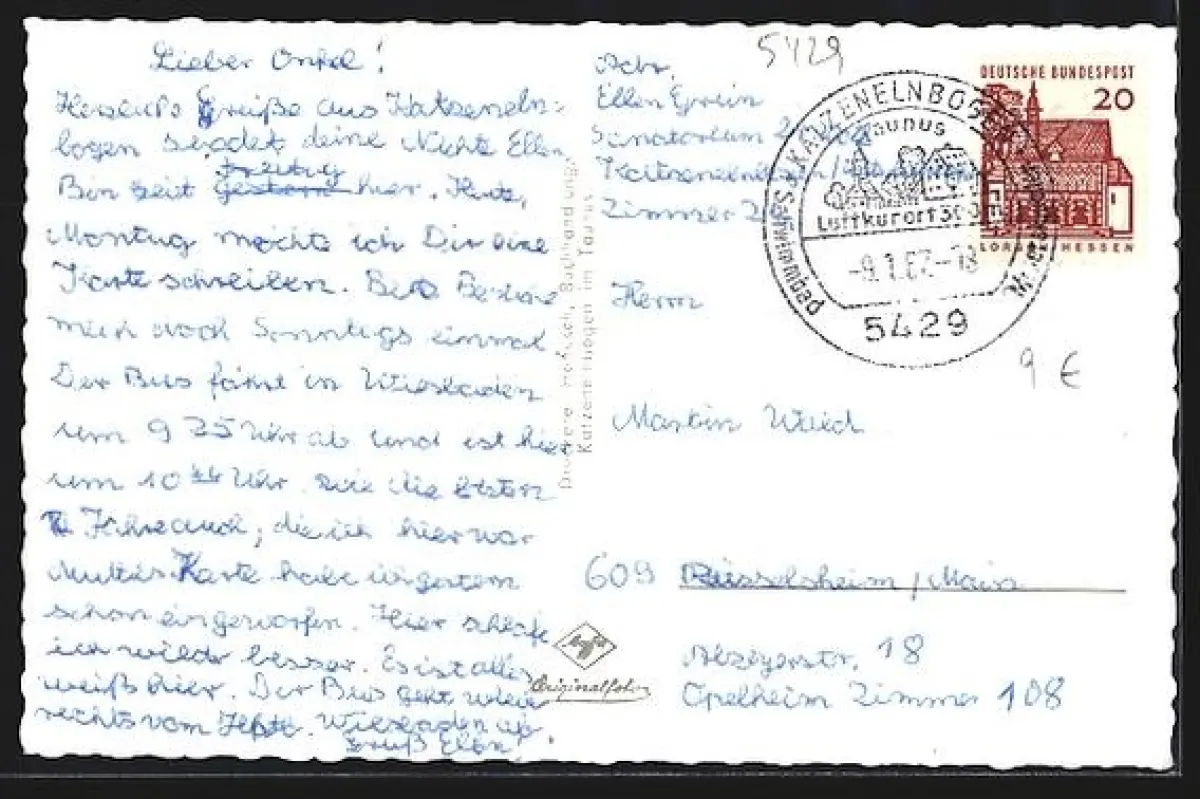 Lieber Onkel!
Grüße aus Katzeneln=
bogen sendet deine Nichte Ellen
Freitag
Bin seit gestern hier. Heute,
Montag möchte ich Dir eine
Karte schreiben.
mich noch Sonntags einmal
Der Bus fährt in Wiesbaden
um 9 25 Uhr ab und ist hier
um 10 44 Uhr. wie die
Jahre auch, die ich hier war
Mutters Karte habe ich gestern
schon eingeworfen. Hier schlafe
ich wieder besser. Es ist alles
weiß hier. Der Bus geht
rechts vom Wiesbaden ab.
Gruß Ellen!
Buchhandlung
Katzenelnbogen im Taunus
Agfa
Originalfoto
5429
Abs.
Ellen
Sanatorium
Katzenelnbogen/Taunus
Zimmer
DEUTSCHE BUNDESPOST
20
LORSCH HESSEN
KATZENELNBOGEN
Taunus
Luftkurort 300m
-9.1.67-18
Schwimmbad
5429
9 €
Herrn
Martin
609 Rüsselsheim/Main
Alzeyerstr. 18
Opelheim Zimmer 108